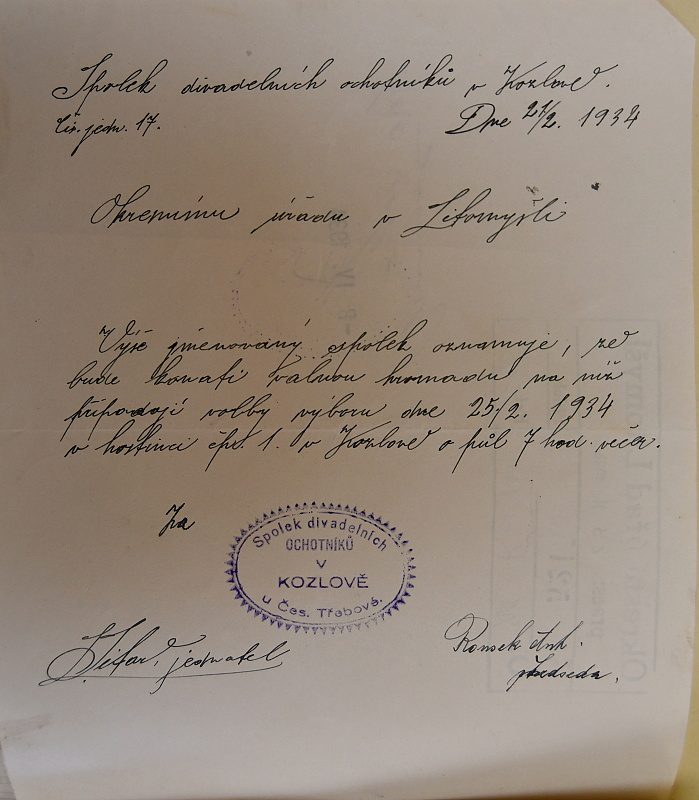 Spolek divadelních ochotníků v Kozlově.
Čís. jedn. 17.
Dne 21/2. 1934
Okresnímu úřadu v Litomyšli
Výše jmenovaný spolek oznamuje, že
bude konati valnou hromadu na níž
připadají volby výboru dne 25/2. 1934
v hostinci čp. 1. v Kozlově o půl 7 hod. večer.
Za
Spolek divadelních
OCHOTNÍKŮ
V
KOZLOVĚ
u Čes. Třebové.
jednatel
Ant.
předseda.